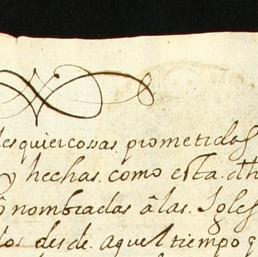 les quier cossas prometidas
y hechas. como esta. dh
nombradas â las Igles
los desde. aquel tiempo q